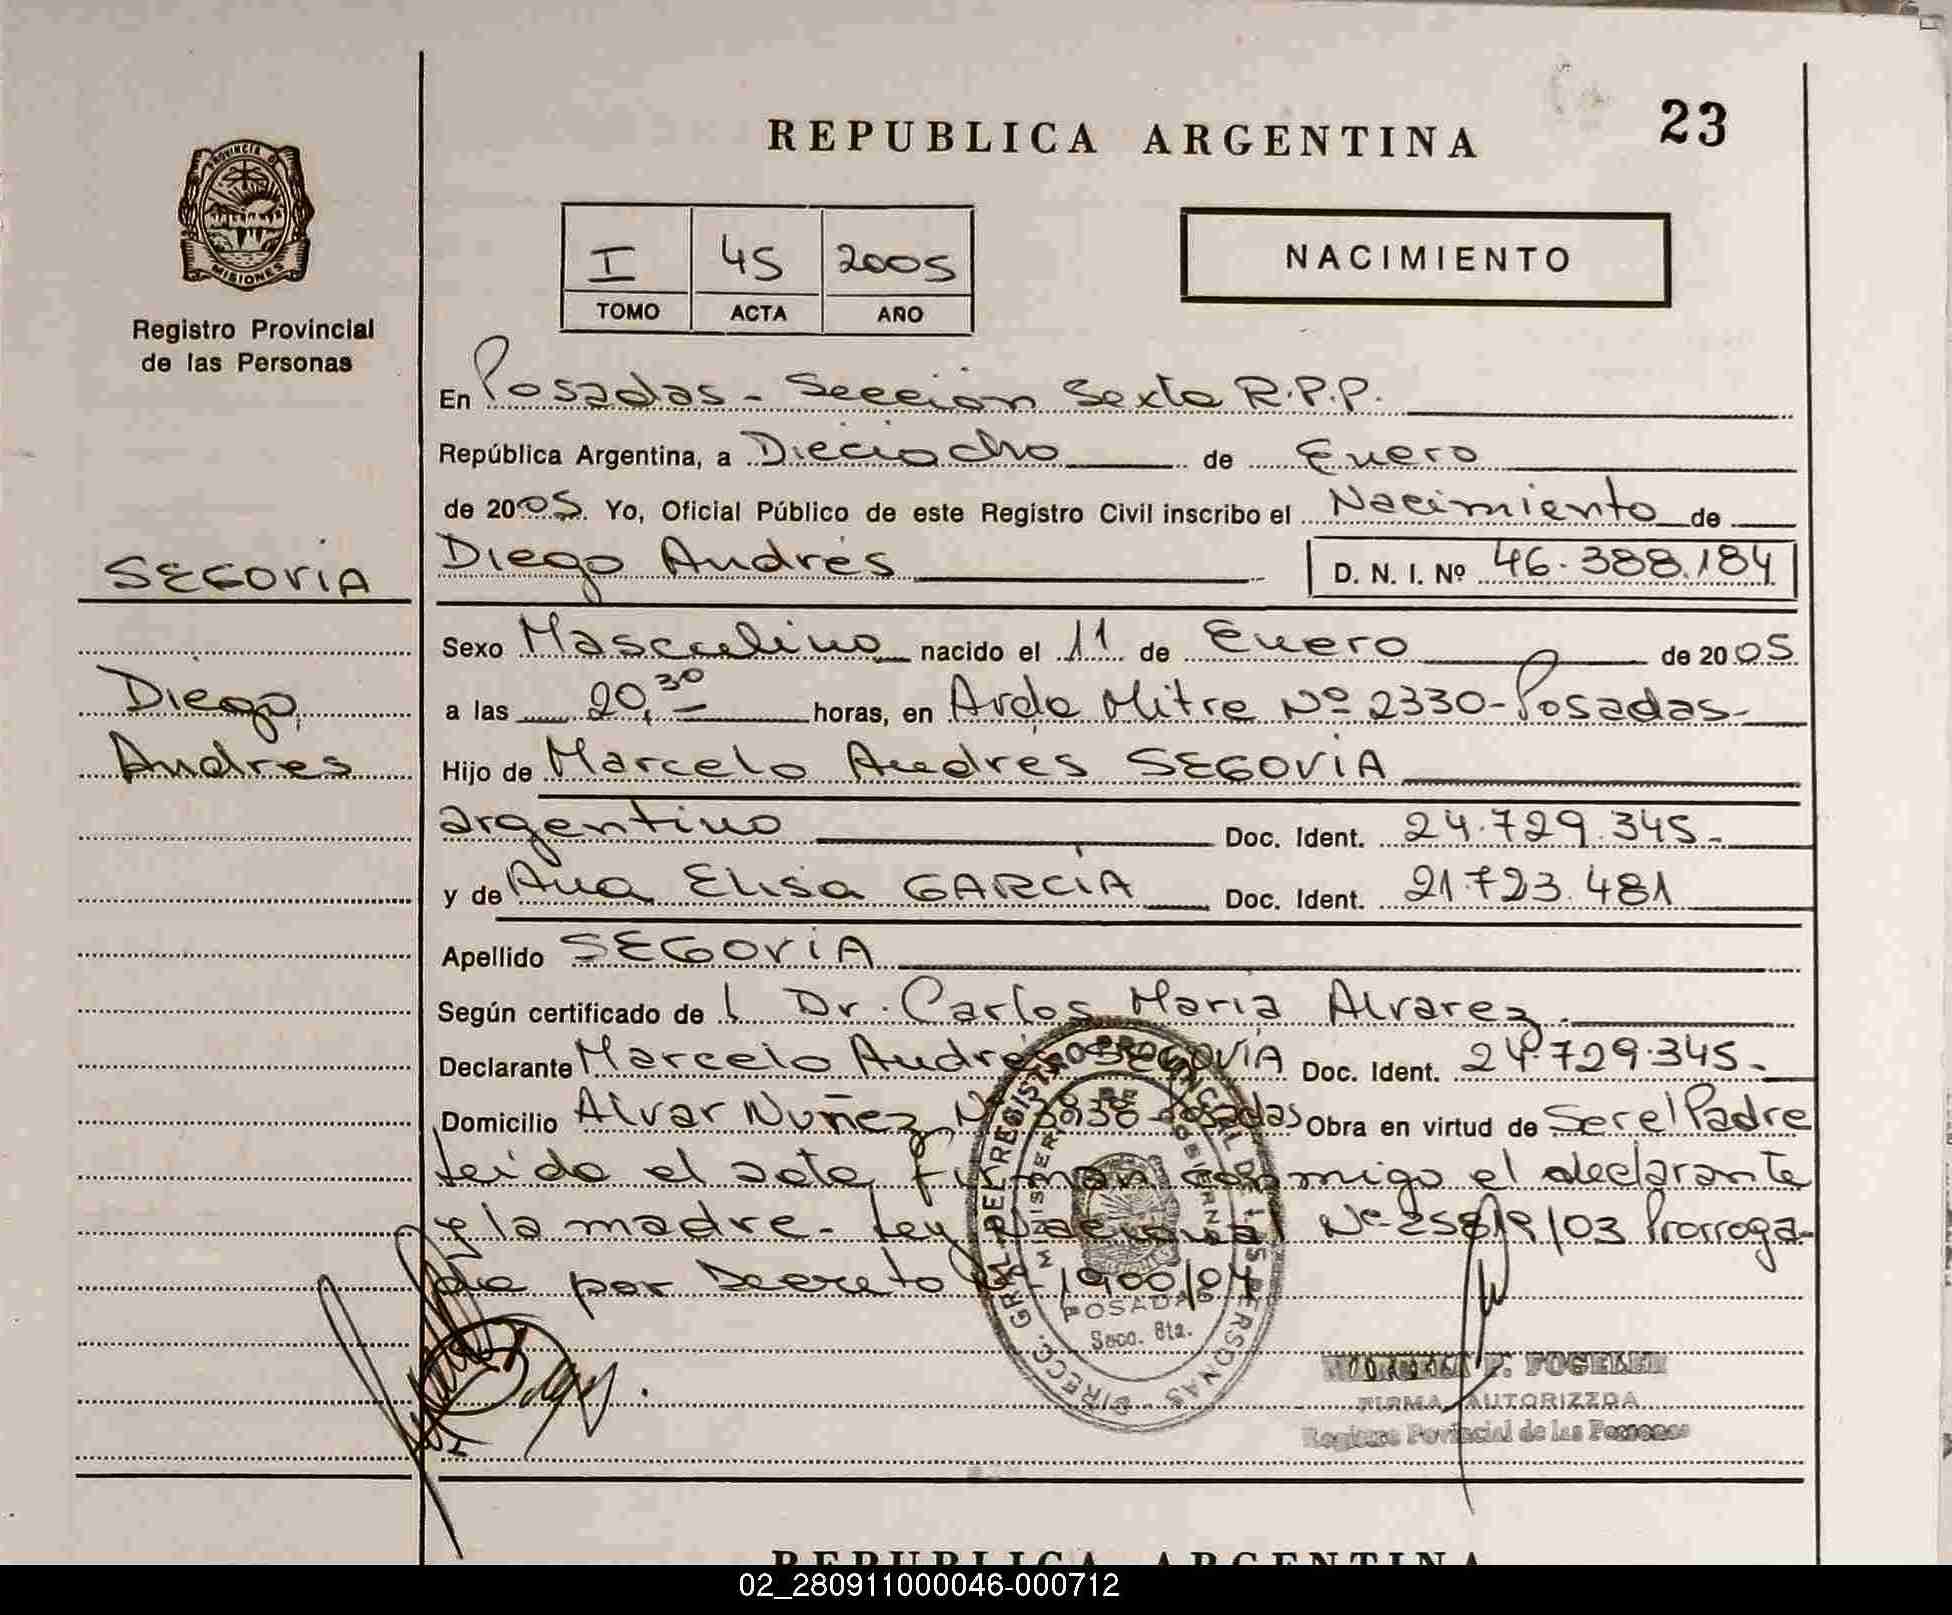 REPUBLICA ARGENTINA
23
PROVINCIA D
MISIONES
Registro Provincial
de las Personas
I 45 2005
TOMO ACTA AÑO
NACIMIENTO
En Posadas - Sección Sexta R.P.P.
República Argentina, a Dieciocho de Enero
de 2005. Yo, Oficial Público de este Registro Civil inscribo el Nacimiento de
SEGOVIA
Diego Andrés D. N. I. Nº 46.388.184
Sexo Masculino nacido el 11 de Enero de 2005
Diego,
a las 20,30 horas, en Avda Mitre Nº 2330-Posadas-
Andres
Hijo de Marcelo Andres SEGOVIA
argentino Doc. Ident. 24.729.345-
y de Ana Elisa GARCIA Doc. Ident. 21.723.481
Apellido SEGOVIA
Según certificado de l Dr. Carlos Maria Alvarez.
Declarante Marcelo Andrés SEGOVIA Doc. Ident. 24.729.345-
Domicilio Alvar Nuñez Nº 3838-Posadas Obra en virtud de Ser el Padre
Leido el acta, firman conmigo el declarante
y la madre- Ley Nacional Nº 25819/03 Prorroga-
da por Decreto 1900/04
DIRECC. GRAL DEL REGISTRO PROVINCIAL DE LAS PERSONAS
POSADAS
Secc. 6ta.
P. FOGELER
FIRMA AUTORIZADA
Registro Provincial de las Personas
REPUBLICA ARGENTINA
02_280911000046-000712